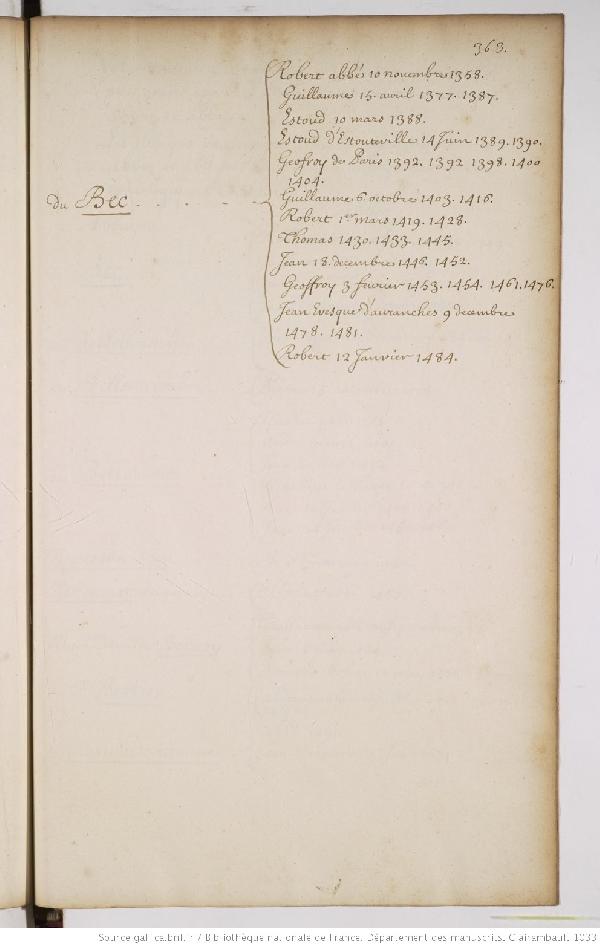 363.
Robert abbé 10 novembre 1358.
Guillaume 15. avril 1377. 1387.
Estoud 10 mars 1388.
Estoud d'Estouteville 14 Juin 1389. 1390.
Geofroy de Paris 1392. 1392 1398. 1400
1404.
du Bec
Guillaume 6 octobre 1403. 1416.
Robert 1er mars 1419. 1428.
Thomas 1430. 1433. 1445.
Jean 18. decembre 1446. 1452.
Geoffroy 3 fevrier 1453. 1454. 1461. 1476.
Jean Evesque d'avranches 9 decembre
1478. 1481.
Robert 12 Janvier 1484.
Source gallica.bnf.fr / Bibliothèque nationale de France. Département des manuscrits. Clairambault. 1033